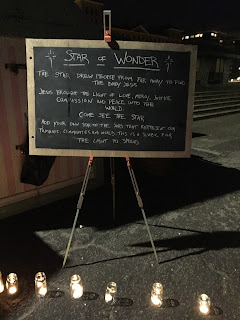 STAR OF WONDER
THE STAR DREW PEOPLE FROM FAR AWAY TO FIND
THE BABY JESUS
JESUS BROUGHT THE LIGHT OF LOVE, MERCY, JUSTICE
COMPASSION AND PEACE INTO THE
WORLD.
COME SEE THE STAR
ADD YOUR OWN STAR TO THE
FAMILIES, COMMUNITIES WORLD. THIS IS A
THE LIGHT TO SPREAD